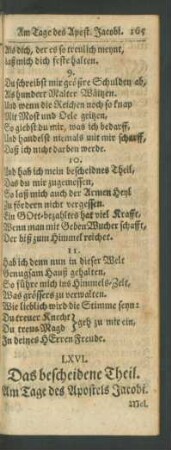 Am Tage des Apost. Jacobi. 165
Als dich, der es so treulich meynt,
laß mich dich feste halten.
9.
Du schreibst mir größre Schulden ab,
Als hundert Malter Wäitzen.
Und wenn die Reichen noch so knap
Mit Most und Oele geitzen,
So giebst du mir, was ich bedarff,
Und handelst niemals mit mir scharff,
Daß ich nicht darben werde.
10.
Und hab ich mein bescheidnes Theil,
Das du mir zugemessen,
So laß mich auch der Armen Heyl
Zu fördern nicht vergessen.
Ein GOtt-bezahltes hat viel Krafft,
Wenn man mit Geben Wucher schafft,
Der biß zum Himmel reichet.
11.
Hab ich denn nun in dieser Welt
Genugsam Hauß gehalten,
So führe mich ins Himmels-Zelt,
Was grössers zu verwalten.
Wie lieblich wird die Stimme seyn:
Du treuer Knecht
Du treue Magd } geh zu mir ein,
In deines HErren Freude.
LXVI.
Das bescheidene Theil.
Am Tage des Apostels Jacobi.
Mel.